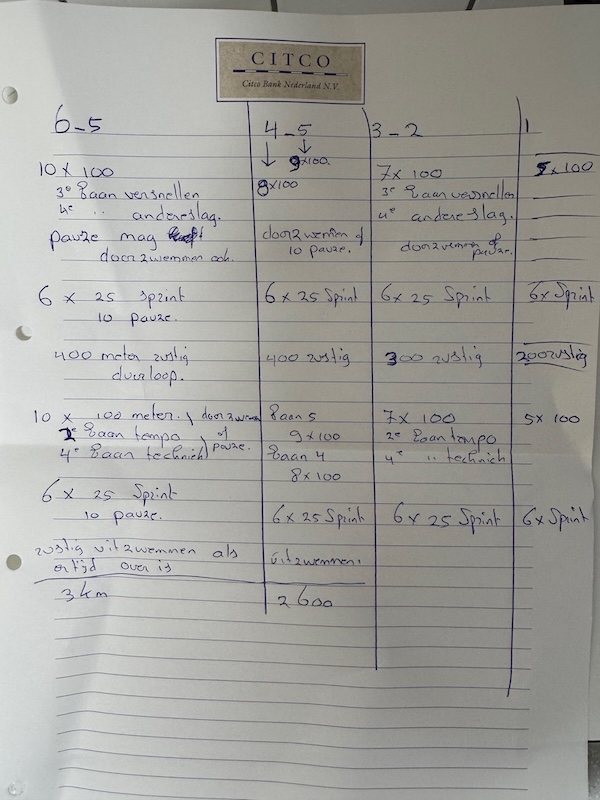 CITCO
Citco Bank Nederland N.V.
6-5
10 x 100
3e baan versnellen
4e " andere slag.
pauze mag
doorzwemmen ook.
6 x 25 sprint
10 pauze.
400 meter rustig
duurloop.
10 x 100 meter. doorzwemmen
2e baan tempo of
4e baan techniek pauze.
6 x 25 Sprint
10 pauze.
rustig uitzwemmen als
er tijd over is
3 km
4-5
9x100.
8x100
doorzwemmen of
10 pauze.
6 x 25 Sprint
400 rustig
Baan 5
9 x 100
Baan 4
8 x 100
6 x 25 Sprint
uitzwemmen.
2600
3-2
7 x 100
3e baan versnellen
4e andere slag.
doorzwemmen of
pauze.
6 x 25 Sprint
300 rustig
7 x 100
2e baan tempo
4e " techniek
6 x 25 Sprint
1
5 x 100
6 x Sprint
200 rustig
5 x 100
6 x Sprint